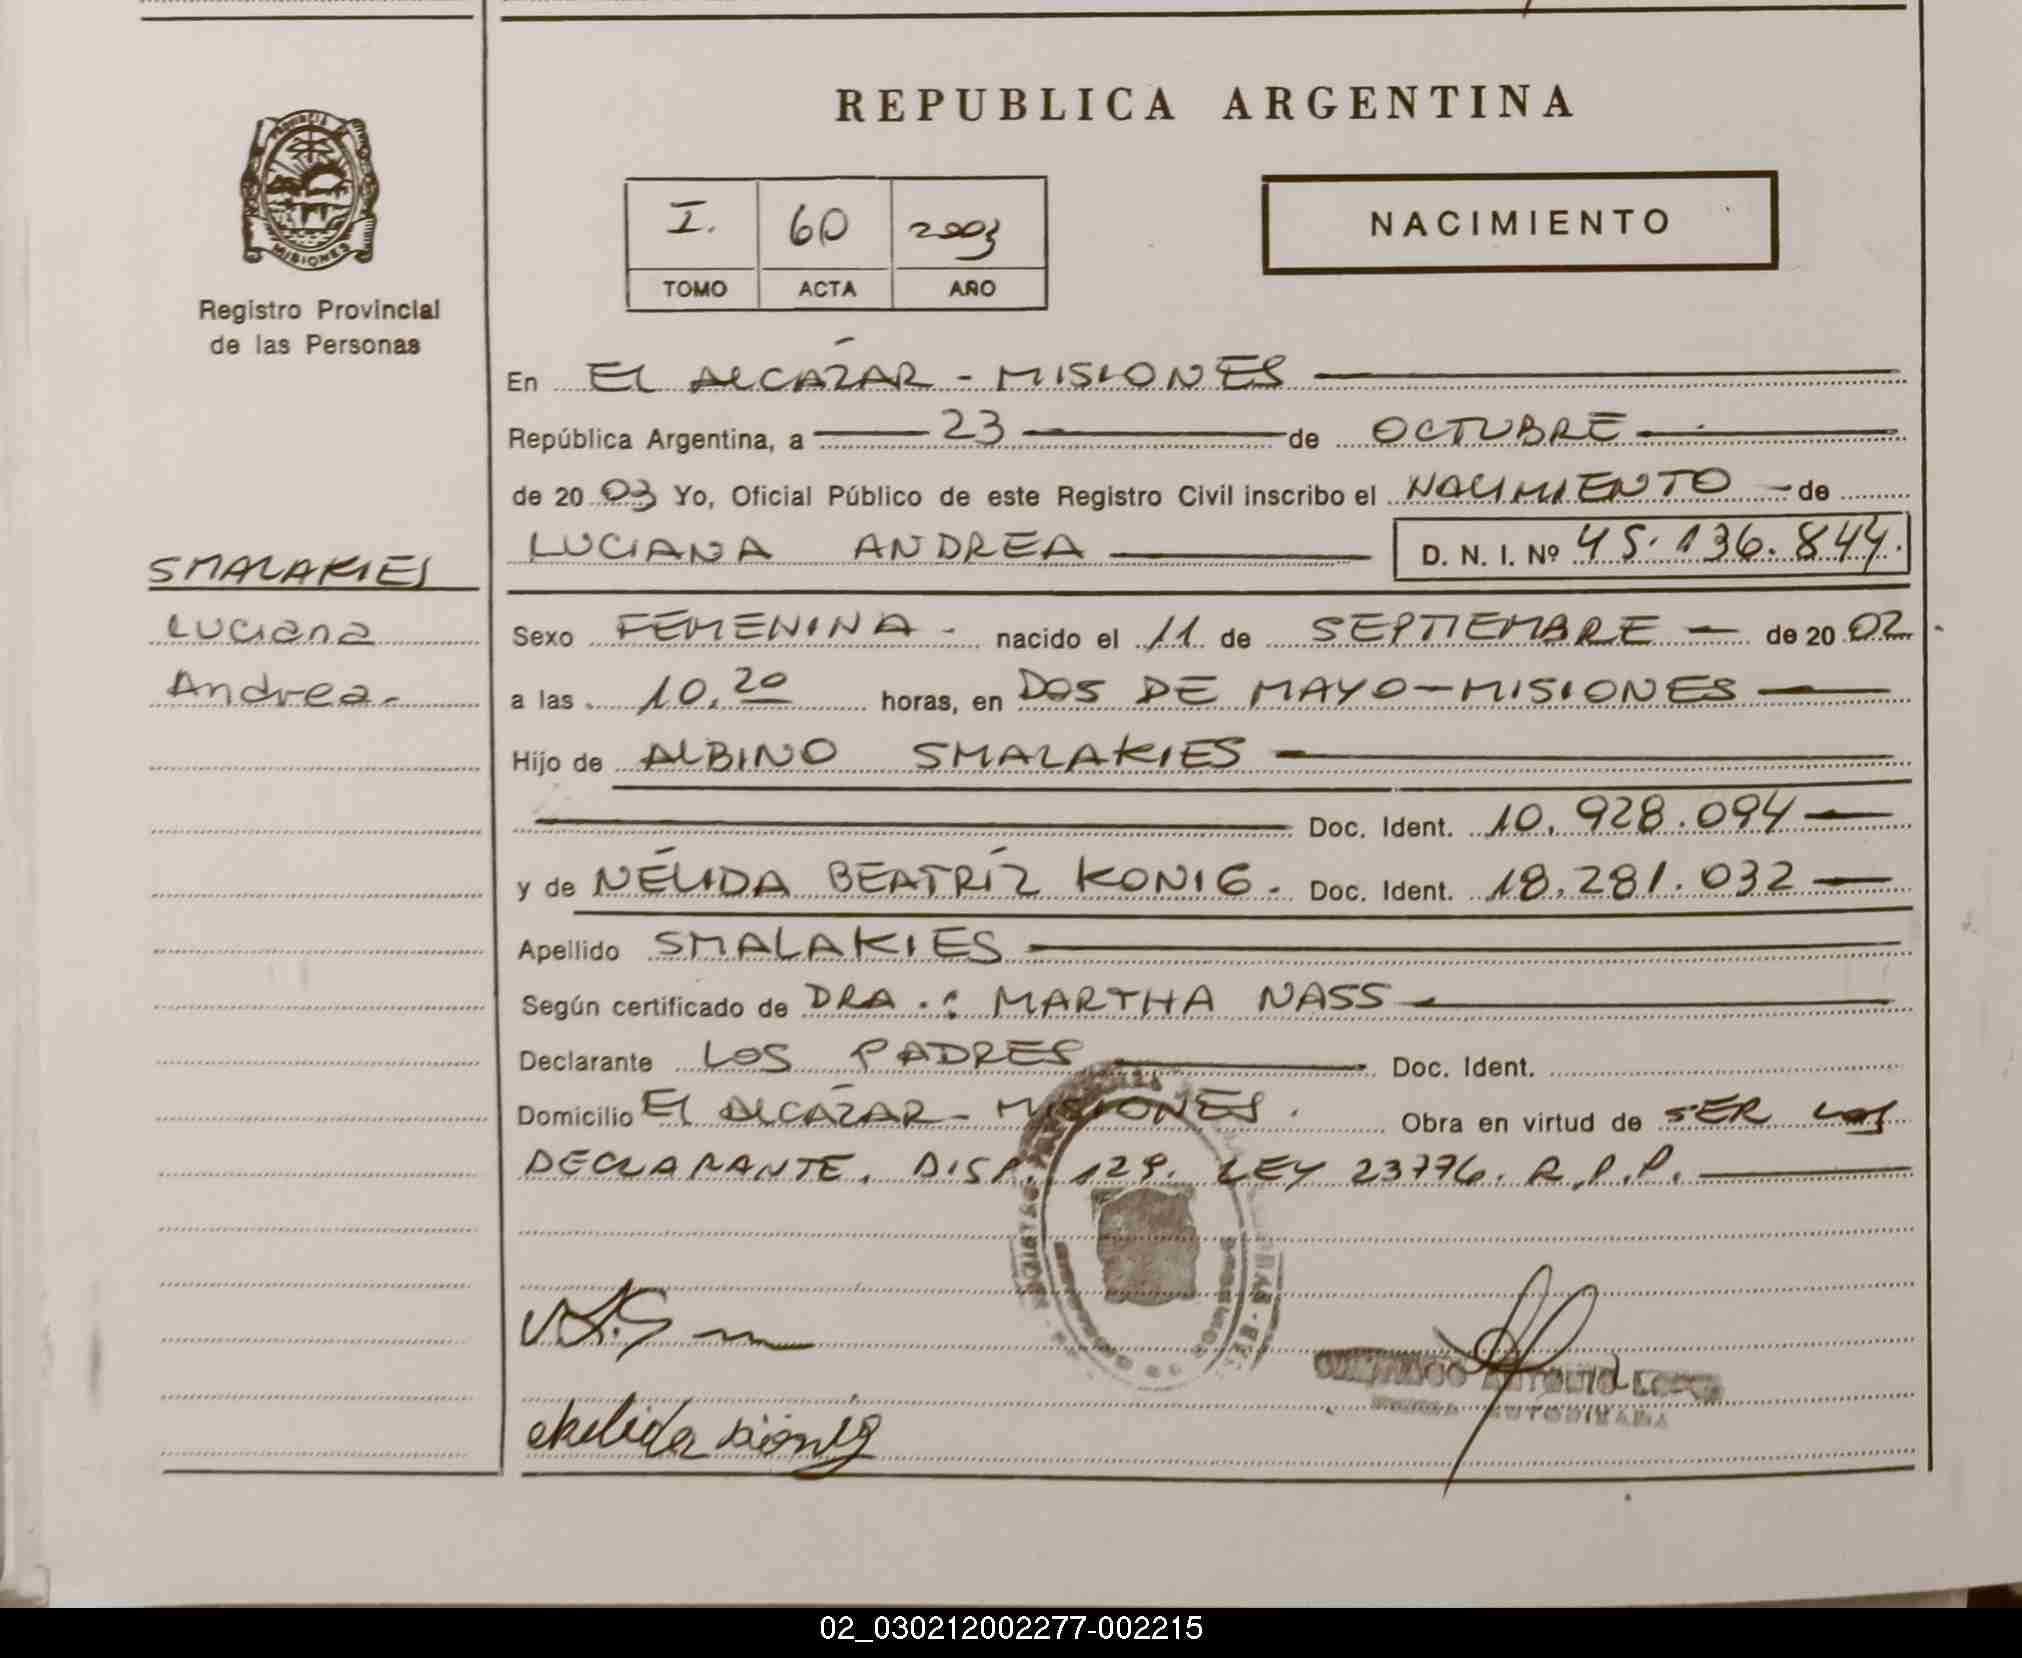 REPUBLICA ARGENTINA
PROVINCIA DE MISIONES
Registro Provincial
de las Personas
I. 60 2003
TOMO ACTA AÑO
NACIMIENTO
En EL ALCAZAR - MISIONES
República Argentina, a 23 de OCTUBRE
de 20 03 Yo, Oficial Público de este Registro Civil inscribo el NACIMIENTO de
LUCIANA ANDREA D. N. I. Nº 45.136.844.
SMALAKIES
Luciana
Andrea.
Sexo FEMENINA - nacido el 11 de SEPTIEMBRE de 20 02
a las 10,20 horas, en DOS DE MAYO-MISIONES
Hijo de ALBINO SMALAKIES
Doc. Ident. 10.928.094
y de NÉLIDA BEATRÍZ KONIG. Doc. Ident. 18.281.032
Apellido SMALAKIES
Según certificado de DRA.: MARTHA NASS
Declarante LOS PADRES Doc. Ident.
Domicilio EL ALCAZAR - MISIONES. Obra en virtud de SER LOS
DECLARANTE. DISP. 129. LEY 23776. R.P.P.
ANTONIO
02_030212002277-002215